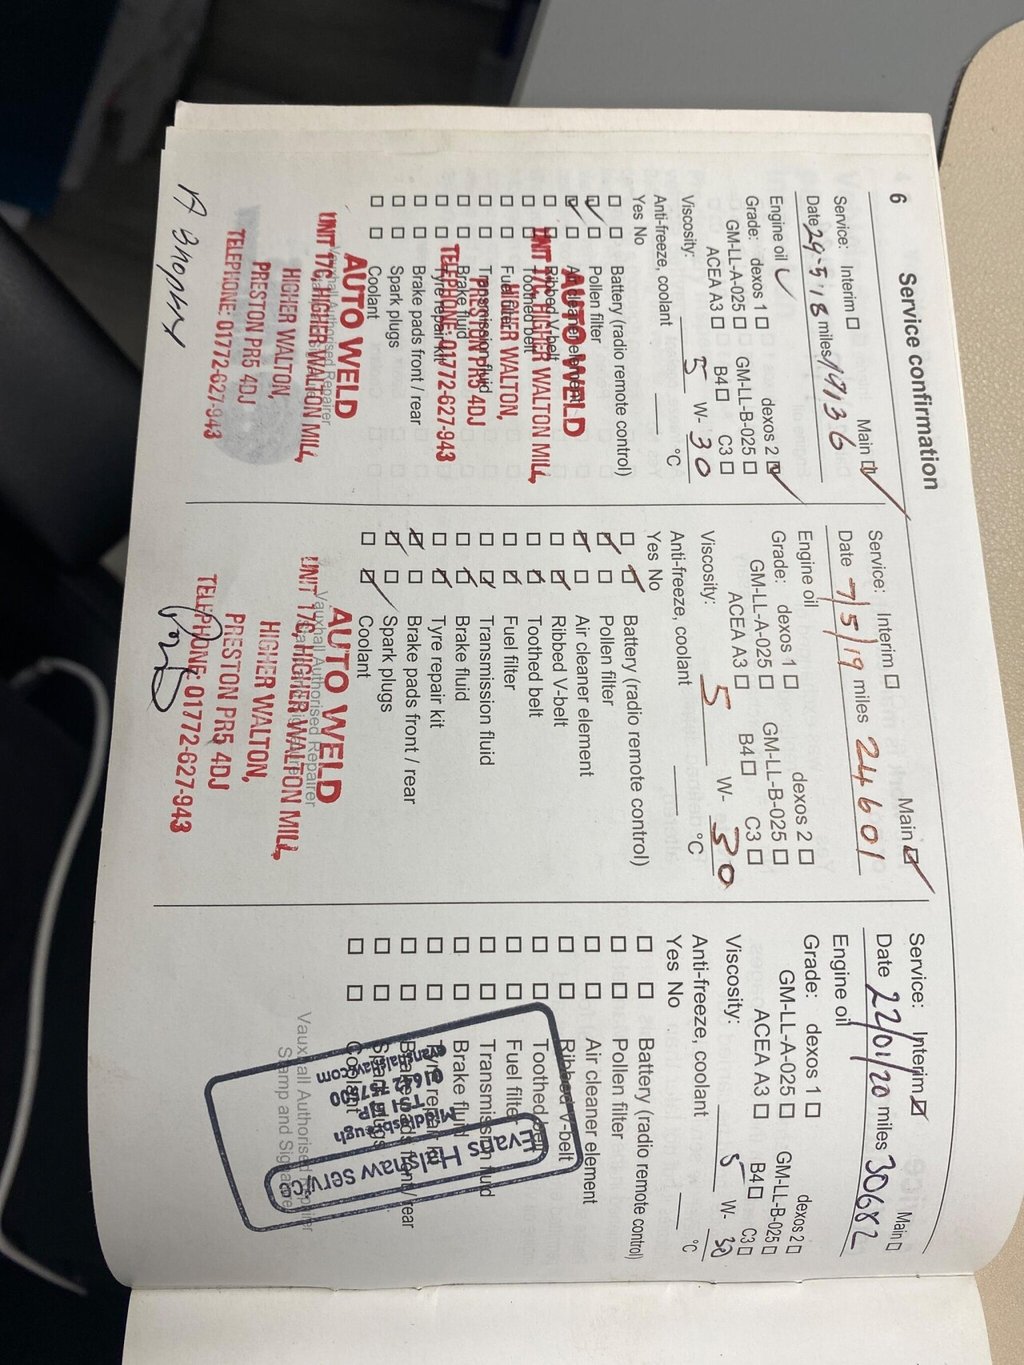 6
Service confirmation
Service: Interim ☐ Main ☑
Date 29-5-18 miles 19136
Engine oil ✓
Grade: dexos 1 ☐ dexos 2 ☑
GM-LL-A-025 ☐ GM-LL-B-025 ☐
ACEA A3 ☐ B4 ☐ C3 ☐
Viscosity: 5 W- 30
Anti-freeze, coolant °C
Yes No
☐ ☐ Battery (radio remote control)
☑ ☐ Pollen filter
☑ ☐ Air cleaner element
☐ ☐ Ribbed V-belt
☐ ☐ Toothed belt
☐ ☐ Fuel filter
☐ ☐ Transmission fluid
☐ ☐ Brake fluid
☐ ☐ Tyre repair kit
☐ ☐ Brake pads front / rear
☐ ☐ Spark plugs
☐ ☐ Coolant
AUTO WELD
UNIT 17C, HIGHER WALTON MILL,
HIGHER WALTON,
PRESTON PR5 4DJ
TELEPHONE: 01772-627-943
Vauxhall Authorised Repairer
AUTO WELD
UNIT 17C, HIGHER WALTON MILL,
HIGHER WALTON,
PRESTON PR5 4DJ
TELEPHONE: 01772-627-943
Service: Interim ☐ Main ☑
Date 7/5/19 miles 24601
Engine oil
Grade: dexos 1 ☐ dexos 2 ☐
GM-LL-A-025 ☐ GM-LL-B-025 ☐
ACEA A3 ☐ B4 ☐ C3 ☐
Viscosity: 5 W- 30
Anti-freeze, coolant °C
Yes No
☐ ☑ Battery (radio remote control)
☑ ☐ Pollen filter
☑ ☐ Air cleaner element
☐ ☑ Ribbed V-belt
☐ ☑ Toothed belt
☐ ☑ Fuel filter
☐ ☑ Transmission fluid
☐ ☑ Brake fluid
☐ ☑ Tyre repair kit
☑ ☐ Brake pads front / rear
☑ ☐ Spark plugs
☐ ☑ Coolant
Vauxhall Authorised Repairer
AUTO WELD
UNIT 17C, HIGHER WALTON MILL,
HIGHER WALTON,
PRESTON PR5 4DJ
TELEPHONE: 01772-627-943
Service: Interim ☑ Main ☐
Date 22/01/20 miles 30682
Engine oil
Grade: dexos 1 ☐ dexos 2 ☐
GM-LL-A-025 ☐ GM-LL-B-025 ☐
ACEA A3 ☐ B4 ☐ C3 ☐
Viscosity: 5 W- 30
Anti-freeze, coolant °C
Yes No
☐ ☐ Battery (radio remote control)
☐ ☐ Pollen filter
☐ ☐ Air cleaner element
☐ ☐ Ribbed V-belt
☐ ☐ Toothed belt
☐ ☐ Fuel filter
☐ ☐ Transmission fluid
☐ ☐ Brake fluid
☐ ☐ Tyre repair kit
☐ ☐ Brake pads front / rear
☐ ☐ Spark plugs
☐ ☐ Coolant
Vauxhall Authorised Repairer
Stamp and Signature
Evans Halshaw service
Middlesbrough
01642 757500